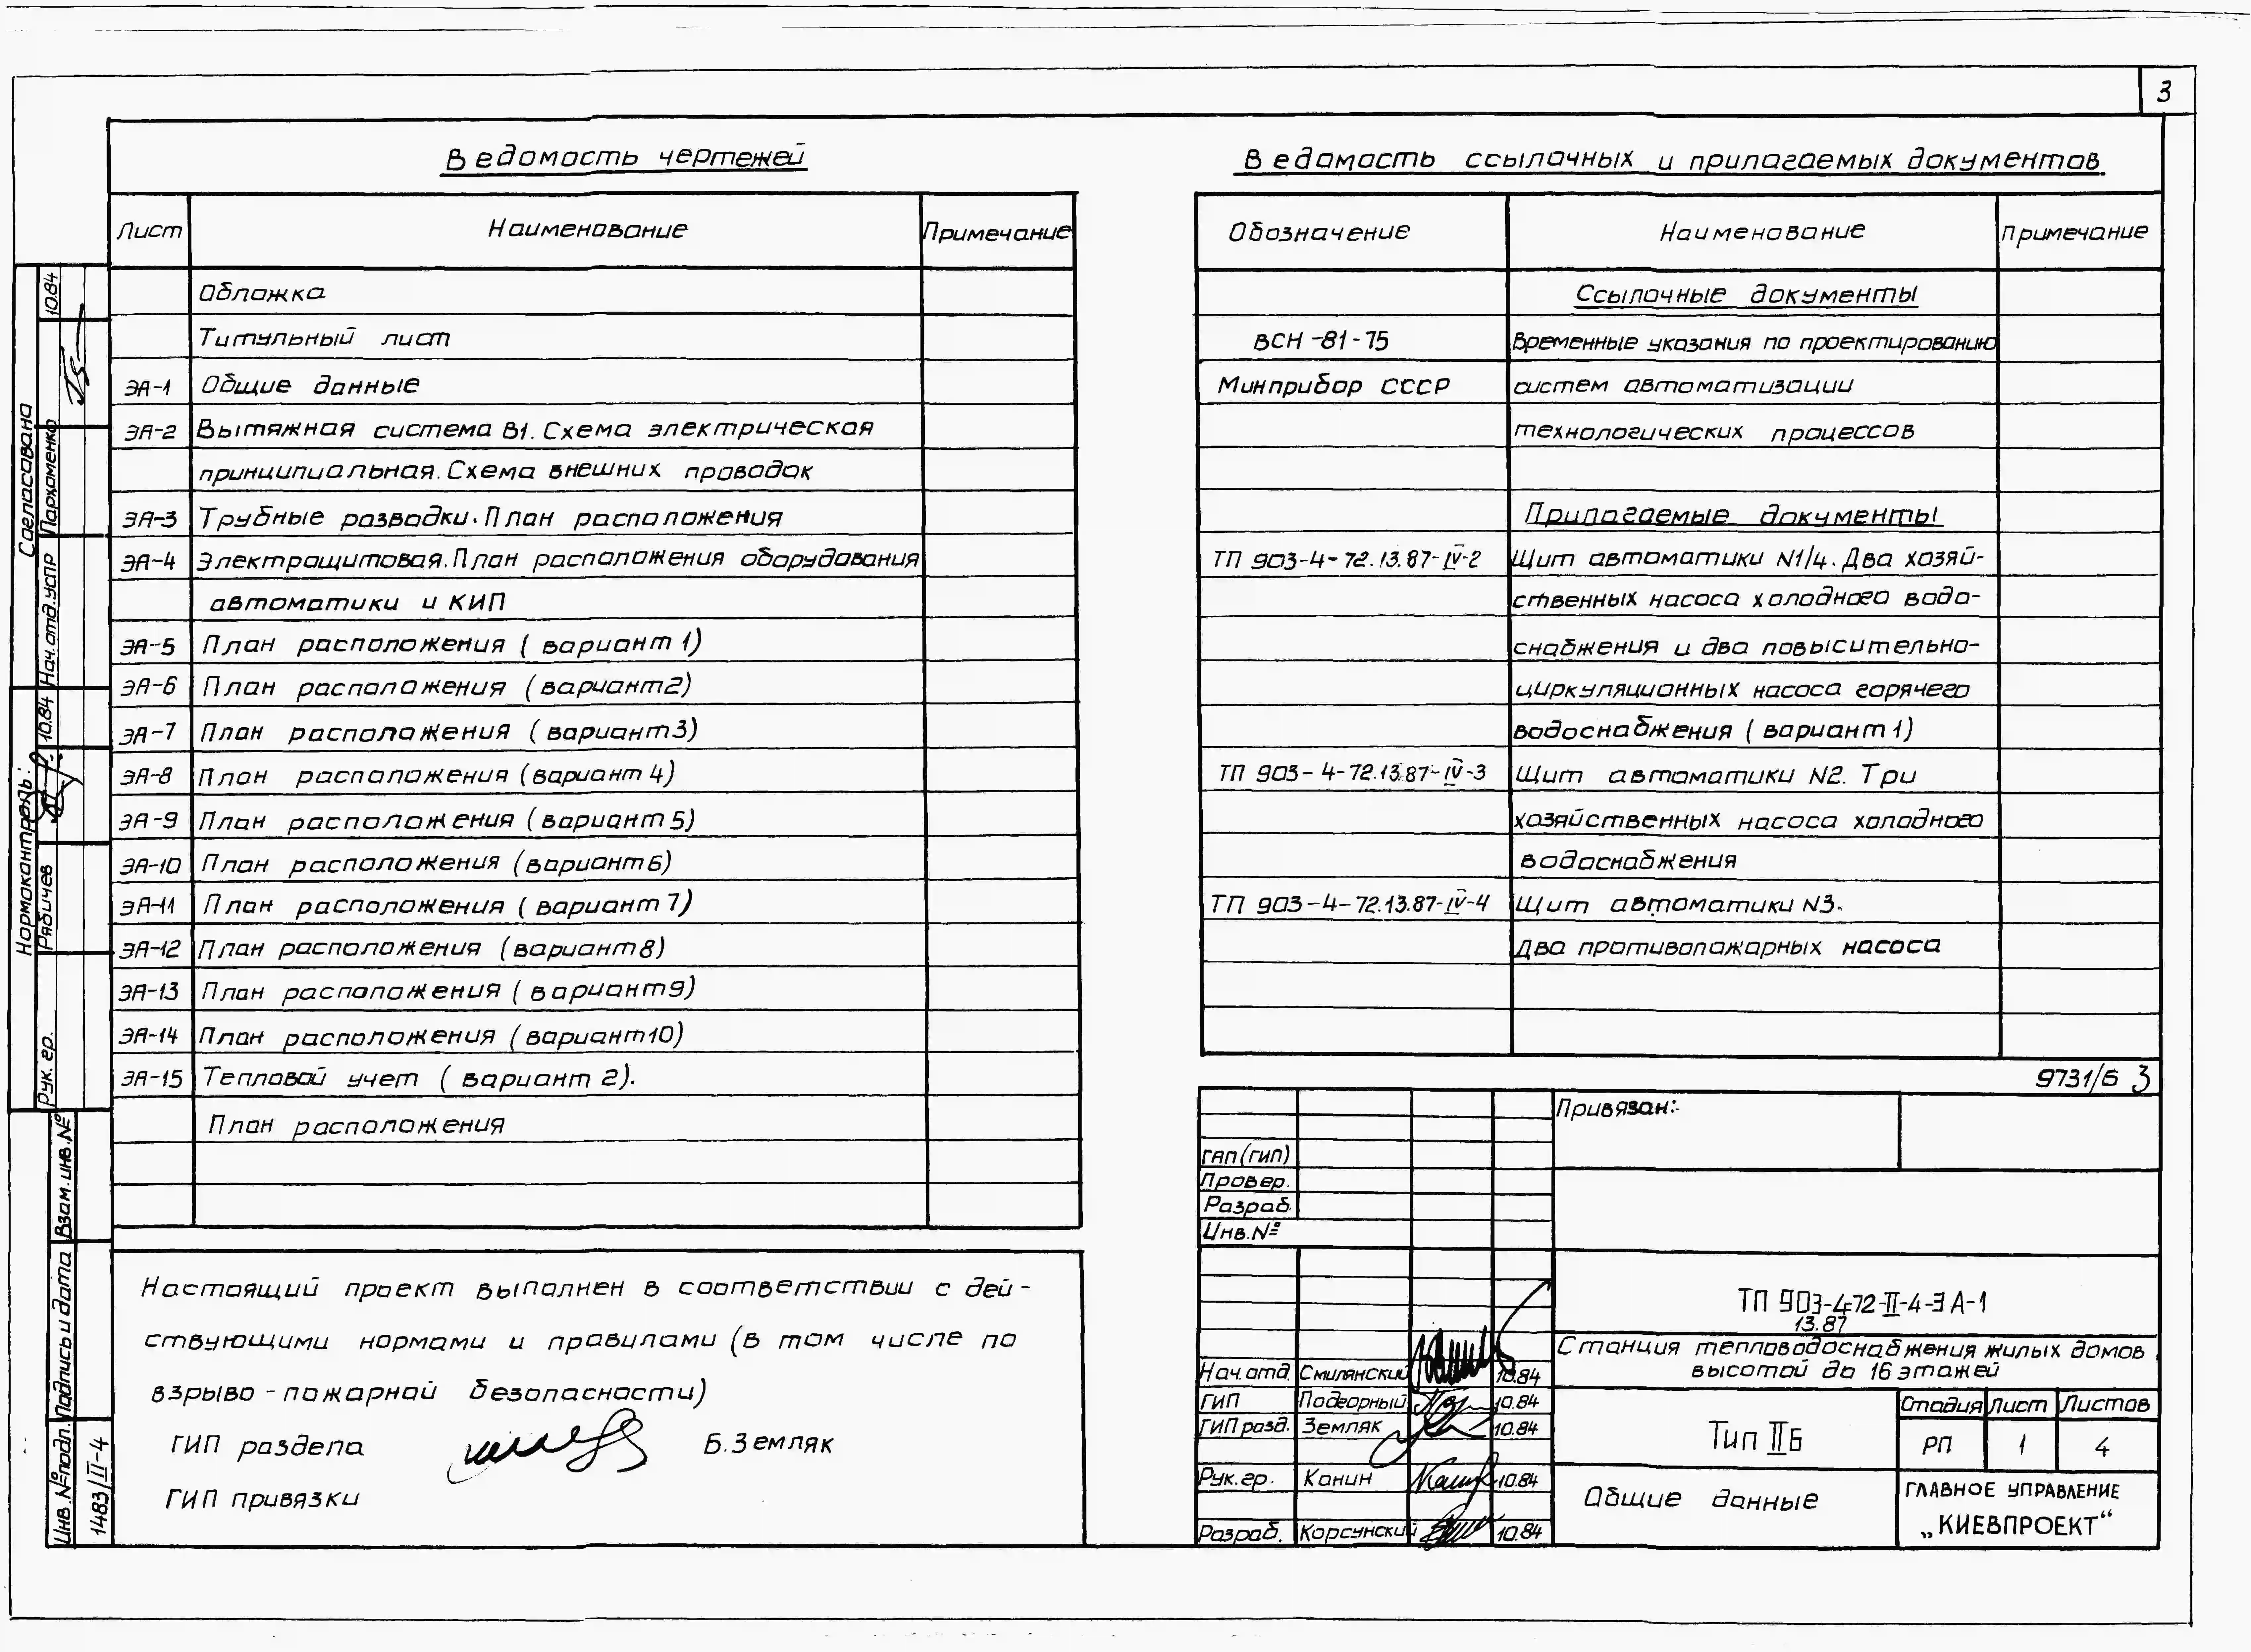 3
Ведомость чертежей
Лист Наименование Примечание
Обложка
Титульный лист
ЭА-1 Общие данные
ЭА-2 Вытяжная система В1. Схема электрическая
принципиальная. Схема внешних проводок
ЭА-3 Трубные разводки. План расположения
ЭА-4 Электрощитовая. План расположения оборудования
автоматики и КИП
ЭА-5 План расположения (вариант 1)
ЭА-6 План расположения (вариант 2)
ЭА-7 План расположения (вариант 3)
ЭА-8 План расположения (вариант 4)
ЭА-9 План расположения (вариант 5)
ЭА-10 План расположения (вариант 6)
ЭА-11 План расположения (вариант 7)
ЭА-12 План расположения (вариант 8)
ЭА-13 План расположения (вариант 9)
ЭА-14 План расположения (вариант 10)
ЭА-15 Тепловой учет (вариант 2).
План расположения
Настоящий проект выполнен в соответствии с дей-
ствующими нормами и правилами (в том числе по
взрыво-пожарной безопасности)
ГИП раздела Б. Земляк
ГИП привязки
Ведомость ссылочных и прилагаемых документов.
Обозначение Наименование Примечание
Ссылочные документы
ВСН-81-75 Временные указания по проектированию
Минприбор СССР систем автоматизации
технологических процессов
Прилагаемые документы
ТП 903-4-72.13.87-IV-2 Щит автоматики N1/4. Два хозяй-
ственных насоса холодного водо-
снабжения и два повысительно-
циркуляционных насоса горячего
водоснабжения (вариант 1)
ТП 903-4-72.13.87-IV-3 Щит автоматики N2. Три
хозяйственных насоса холодного
водоснабжения
ТП 903-4-72.13.87-IV-4 Щит автоматики N3.
Два противопожарных насоса
9731/6 3
Привязан:
ГАП (ГИП)
Провер.
Разраб.
Инв. №
ТП 903-4-72-II-4-ЭА-1
13.87
Станция тепловодоснабжения жилых домов
высотой до 16 этажей
Нач. отд. Смилянский 10.84
ГИП Подгорный 10.84
ГИП разд. Земляк 10.84
Рук. гр. Канин 10.84
Разраб. Корсунский 10.84
Тип II Б
Стадия Лист Листов
РП 1 4
Общие данные
ГЛАВНОЕ УПРАВЛЕНИЕ
„КИЕВПРОЕКТ“
Согласовано
Нач. отд. УСПР Пархоменко 10.84
Нормоконтроль:
Рук. гр. Рябичев 10.84
Взам. инв. №
Подпись и дата
Инв. № подл. 1483/II-4